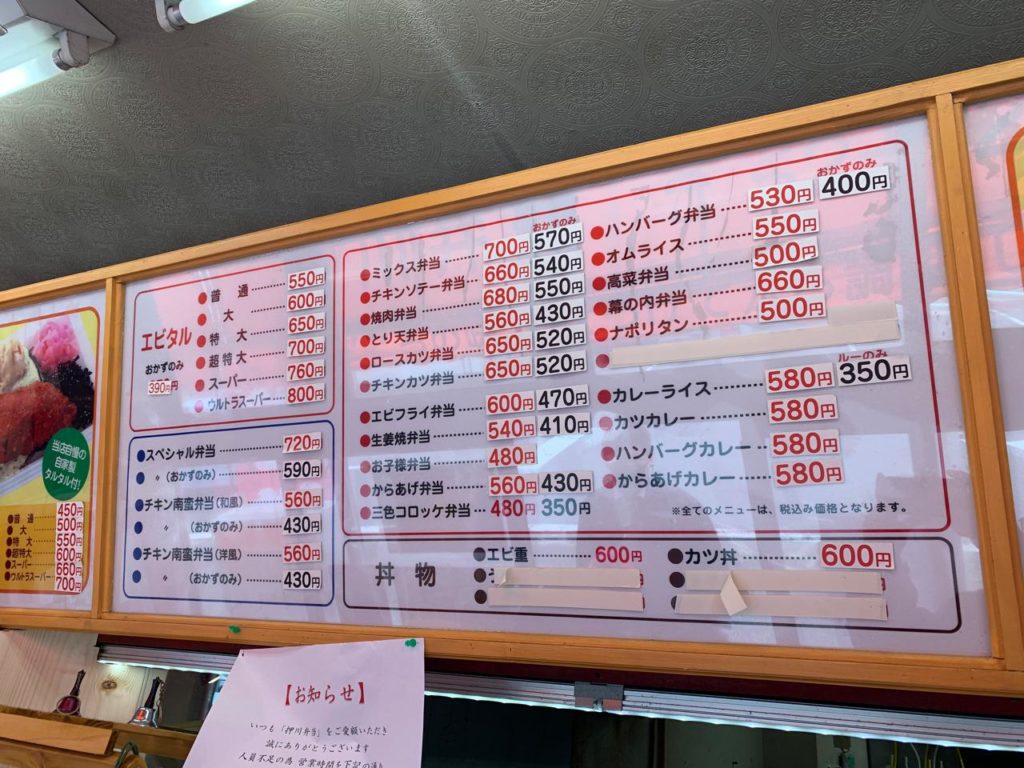 当店自慢の
自家製
タルタル付!
●普通 450円
●大 500円
●特大 550円
●超特大 600円
●スーパー 660円
●ウルトラスーパー 700円
エビタル
おかずのみ
390円
●普通 550円
●大 600円
●特大 650円
●超特大 700円
●スーパー 760円
●ウルトラスーパー 800円
●スペシャル弁当 720円
● 〃 (おかずのみ) 590円
●チキン南蛮弁当(和風) 560円
● 〃 (おかずのみ) 430円
●チキン南蛮弁当(洋風) 560円
● 〃 (おかずのみ) 430円
おかずのみ
●ミックス弁当 700円 570円
●チキンソテー弁当 660円 540円
●焼肉弁当 680円 550円
●とり天弁当 560円 430円
●ロースカツ弁当 650円 520円
●チキンカツ弁当 650円 520円
●エビフライ弁当 600円 470円
●生姜焼弁当 540円 410円
●お子様弁当 480円
●からあげ弁当 560円 430円
●三色コロッケ弁当 480円 350円
おかずのみ
●ハンバーグ弁当 530円 400円
●オムライス 550円
●高菜弁当 500円
●幕の内弁当 660円
●ナポリタン 500円
ルーのみ
●カレーライス 580円 350円
●カツカレー 580円
●ハンバーグカレー 580円
●からあげカレー 580円
※全てのメニューは、税込み価格となります。
丼物
●エビ重 600円
●カツ丼 600円
【お知らせ】
いつも「押川弁当」をご愛顧いただき
誠にありがとうございます
人員不足の為 営業時間を下記の通り